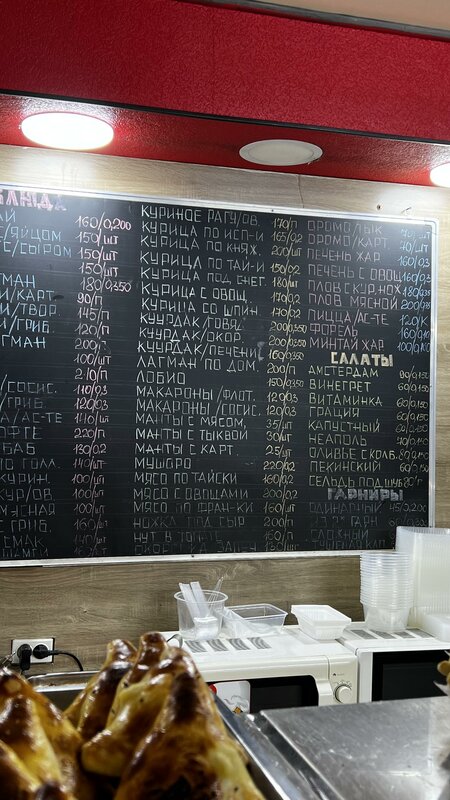 БЛЮДА
АЙ 160/0,200
С/ЯЙЦОМ 150/ШТ
С/СЫРОМ 150/ШТ
150/П
150/ШТ
ГМАН 180/0350
И/КАРТ. 90/П
И/ТВОР. 145/П
И/ГРИБ 120/П
АГМАН 200/П
100/ШТ
2.10/П
/СОСИС. 110/0.3
/ГРИБ. 120/0.3
А/АС-ТЕ 140/ШТ
220/П
БАБ 130/0.2
ПО ГОЛЛ. 140/ШТ
КУРИН. 100/ШТ
КУР/ОВ. 100/ШТ
МУСНАЯ 100/ШТ
С ГРИБ. 160/ШТ
СМАК 140/ШТ
КУРИНОЕ РАГУ/ОВ. 170/П
КУРИЦА ПО ИСП-И 165/0.2
КУРИЦА ПО КНЯЖ. 200/ШТ
КУРИЦА ПО ТАЙ-И 150/0.2
КУРИЦА ПОД СНЕГ. 180/ШТ
КУРИЦА С ОВОЩ. 170/0.2
КУРИЦА СО ШПИН. 170/0.2
КУУРДАК/ГОВЯД. 200/0.350
КУУРДАК/ОКОР. 200/0.350
КУУРДАК/ПЕЧЕНИ 160/0.350
ЛАГМАН ПО ДОМ. 200/П
ЛОБИО 150/0350
МАКАРОНЫ/ФЛОТ. 120/0.3
МАКАРОНЫ/СОСИС. 120/0.3
МАНТЫ С МЯСОМ 35/ШТ
МАНТЫ С ТЫКВОЙ 30/ШТ
МАНТЫ С КАРТ. 25/ШТ
МУШОРО 220/П
МЯСО ПО ТАЙСКИ 160/0.2
МЯСО С ОВОЩАМИ 200/0.2
МЯСО ПО ФРАН-КИ 160/ШТ
НОЖКА ПОД СЫР 200/П
НУТ В ТОМАТЕ 160/П
ОРОМО/ЛЫК 70/ШТ
ОРОМО/КАРТ. 70/ШТ
ПЕЧЕНЬ ЖАР 160/0.3
ПЕЧЕНЬ С ОВОЩ 160/0.3
ПЛОВ С КУР.НОЖ 180/0.35
ПЛОВ МЯСНОЙ 200/0.35
ПИЦЦА/АС-ТЕ 120/К
ФОРЕЛЬ
МИНТАЙ ЖАР 100/0.100
САЛАТЫ
АМСТЕРДАМ 90/0.150
ВИНЕГРЕТ 60/0.150
ВИТАМИНКА 60/0.150
ГРАЦИЯ 60/0.150
КАПУСТНЫЙ 60/0.150
НЕАПОЛЬ 70/0.150
ОЛИВЬЕ С КОЛБ. 80/0.150
ПЕКИНСКИЙ 60/0.150
СЕЛЬДЬ ПОД ШУБ 80/П
ГАРНИРЫ
ОДИНАРНЫЙ
СЛОЖНЫЙ